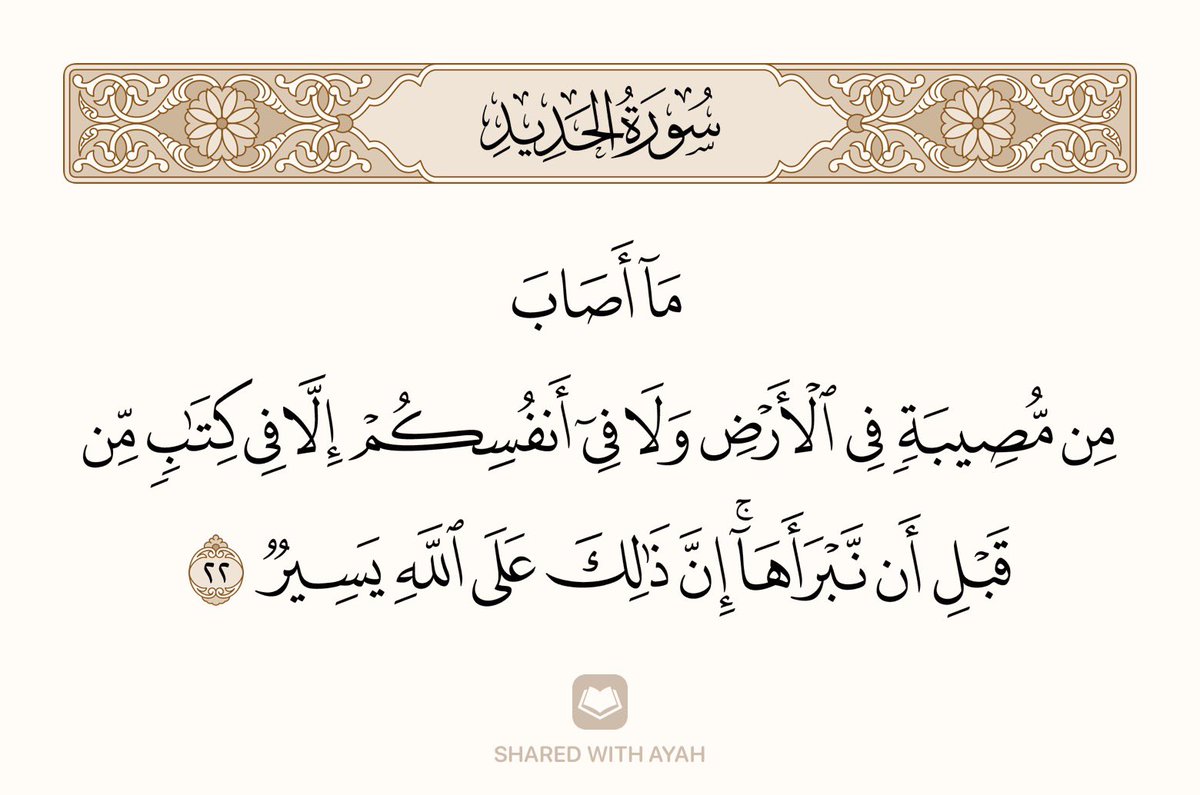 سُورَةُ الحَدِيدِ
مَآ أَصَابَ
مِن مُّصِيبَةٍ فِى ٱلْأَرْضِ وَلَا فِىٓ أَنفُسِكُمْ إِلَّا فِى كِتَـٰبٍ مِّن
قَبْلِ أَن نَّبْرَأَهَآ ۚ إِنَّ ذَٰلِكَ عَلَى ٱللَّهِ يَسِيرٌ ٢٢
SHARED WITH AYAH